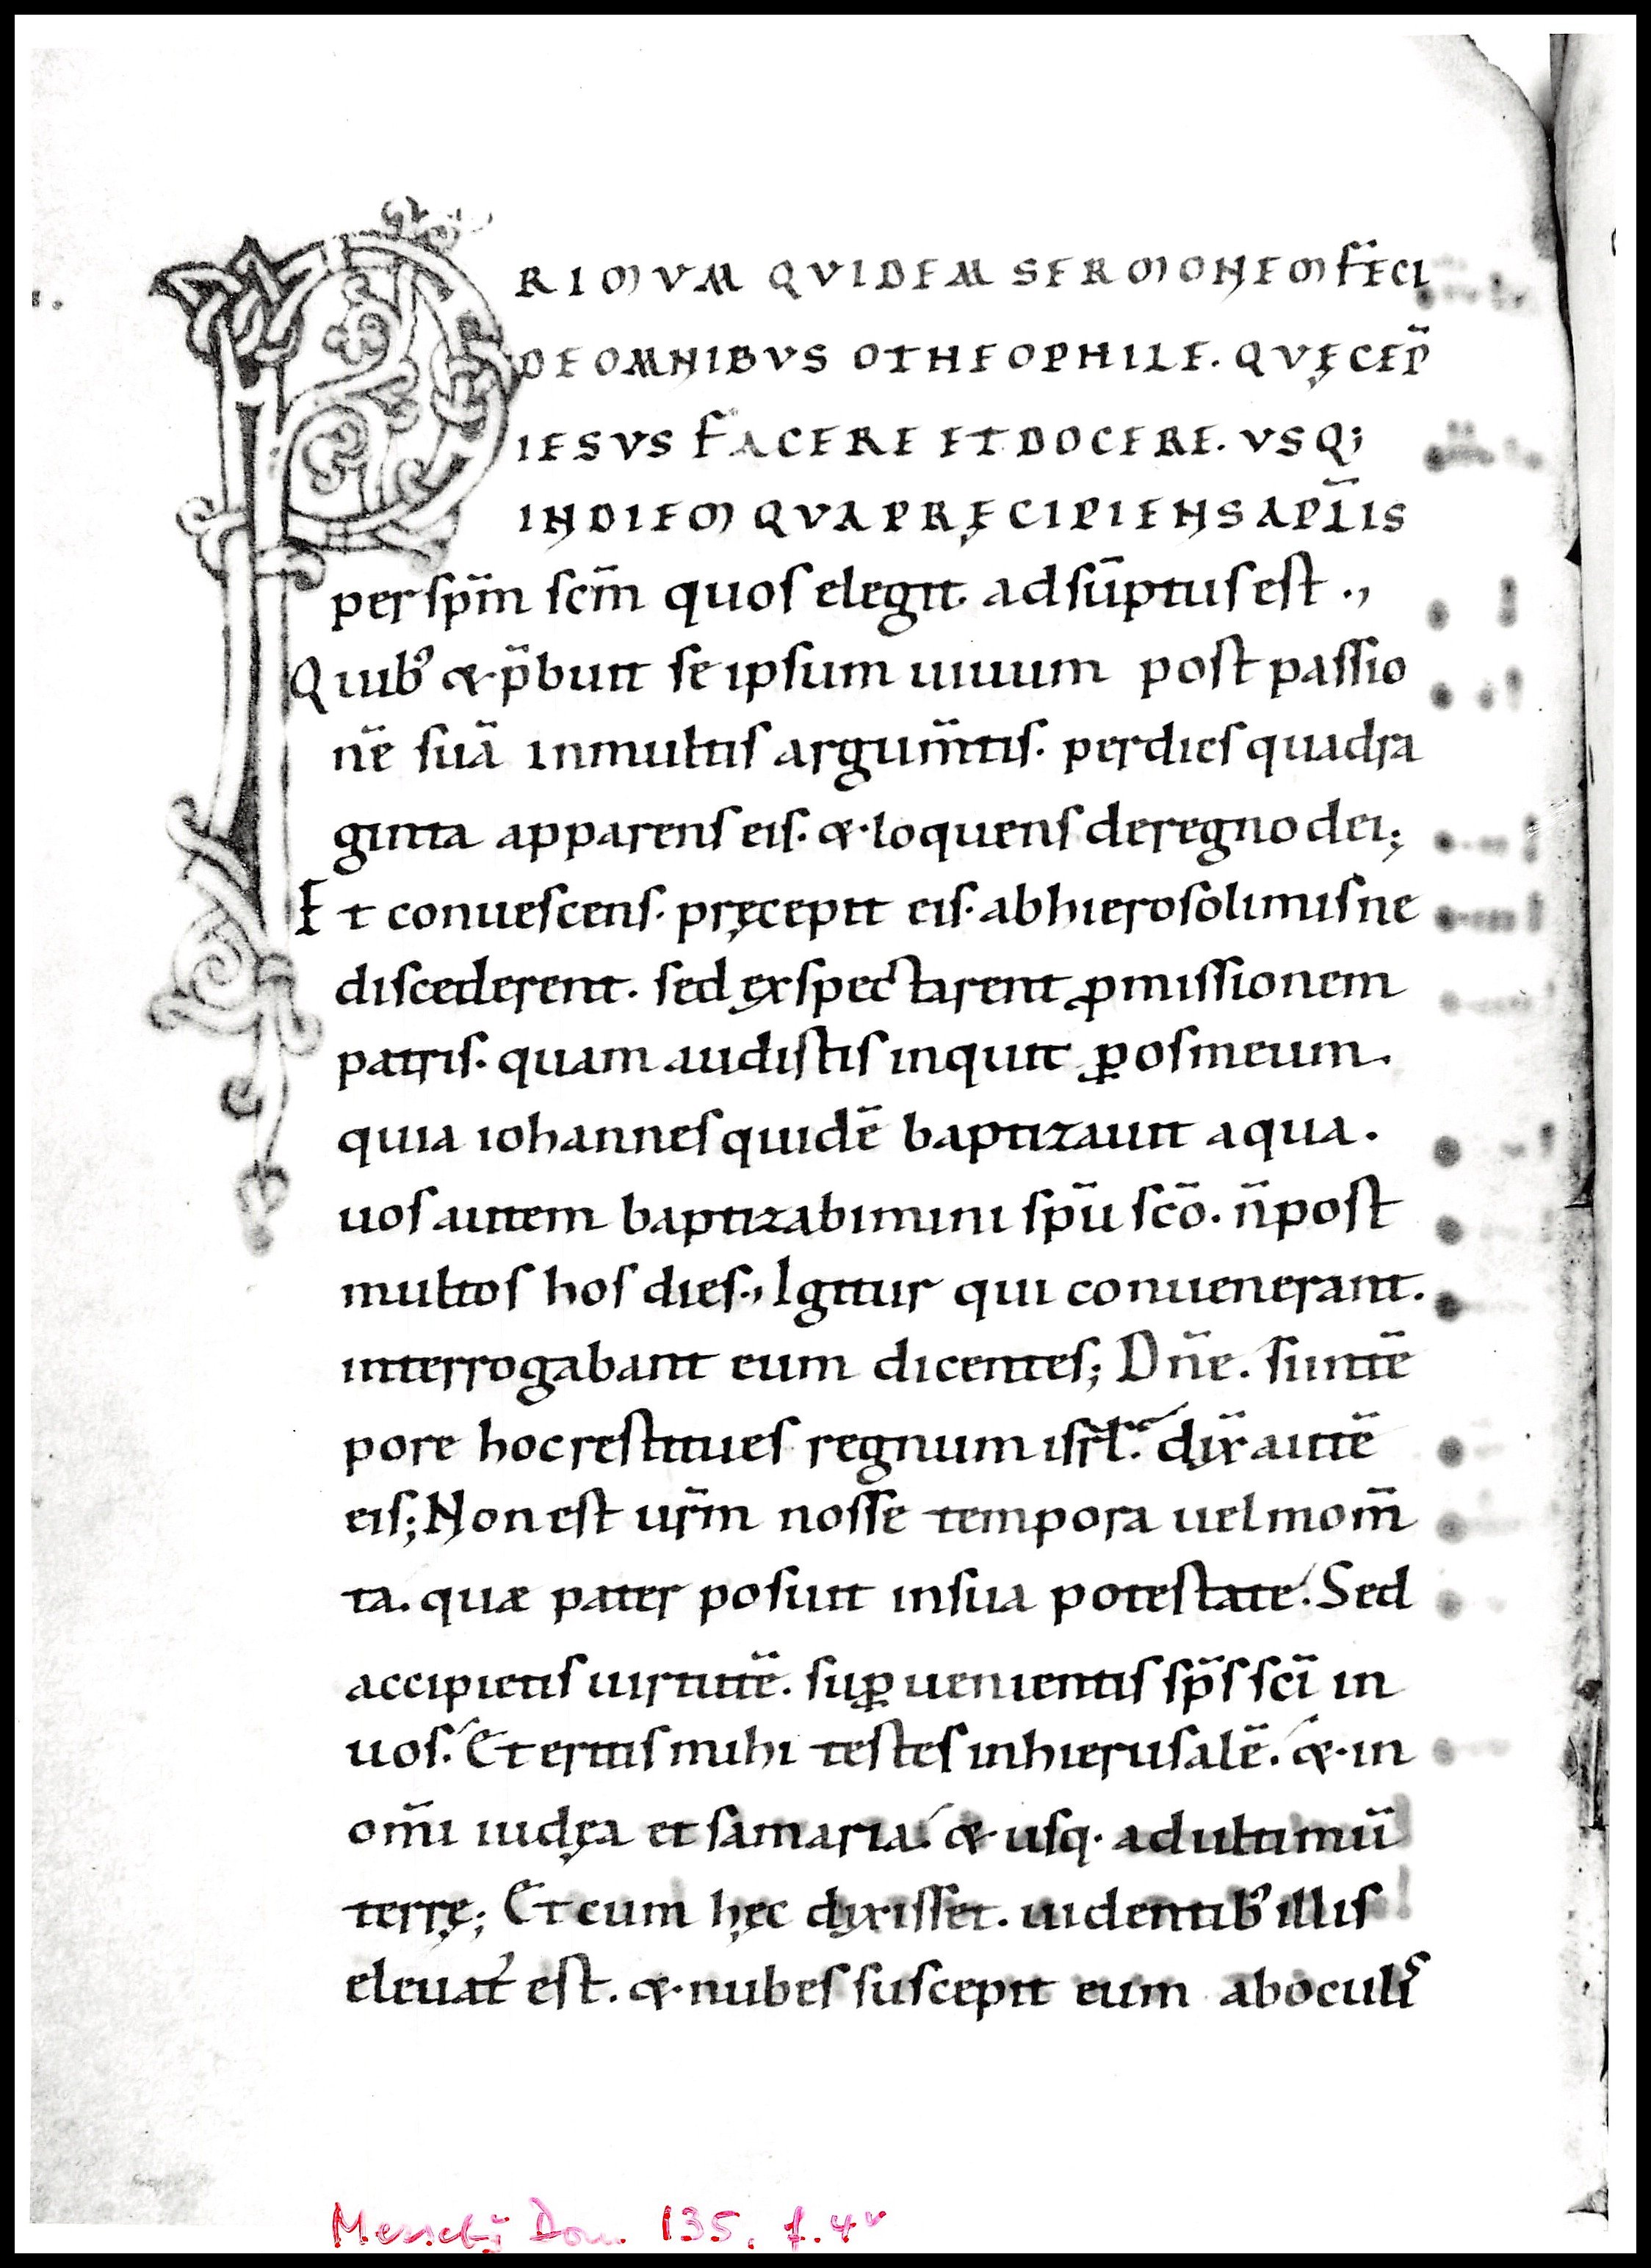 PRIMVM QVIDEM SERMONEM FECI
DE OMNIBVS O THEOPHILE. QVĘ CEP̄
IESVS FACERE ET DOCERE. VSQ;
IN DIEM QVA PRĘCIPIENS APL̅IS
per spm̄ scm̄ quos elegit. adsūptus est .,
Quib᾽ &· p̄buit se ipsum uiuum post passio
nē suā in multis argum̄tis. per dies quadra
ginta apparens eis. &· loquens de regno dei;
Et conuescens. pręcepit eis. ab hierosolimis ne
discederent. sed exspectarent ꝓmissionem
patris. quam audistis inquit ꝑ os meum.
quia iohannes quidē baptizauit aqua.
uos autem baptizabimini spū scō. n̄ post
multos hos dies., Igitur qui conuenerant.
interrogabant eum dicentes; Dn̄e. si in tē
pore hoc restitues regnum isrl̄. dix̄ autē
eis; Non est urm̄ nosse tempora uel mom̄
ta. quæ pater posuit in sua potestate. Sed
accipietis uirtutē. suꝑuenientis sp̄s scī in
uos. Et eritis mihi testes in hierusalē. &· in
om̄i iudęa et samaria. &· usq· ad ultimū
terrę; Et cum hęc dixisset. uidentib᾽ illis
eleuat᾽ est. &· nubes suscepit eum ab oculis
135, f. 4v